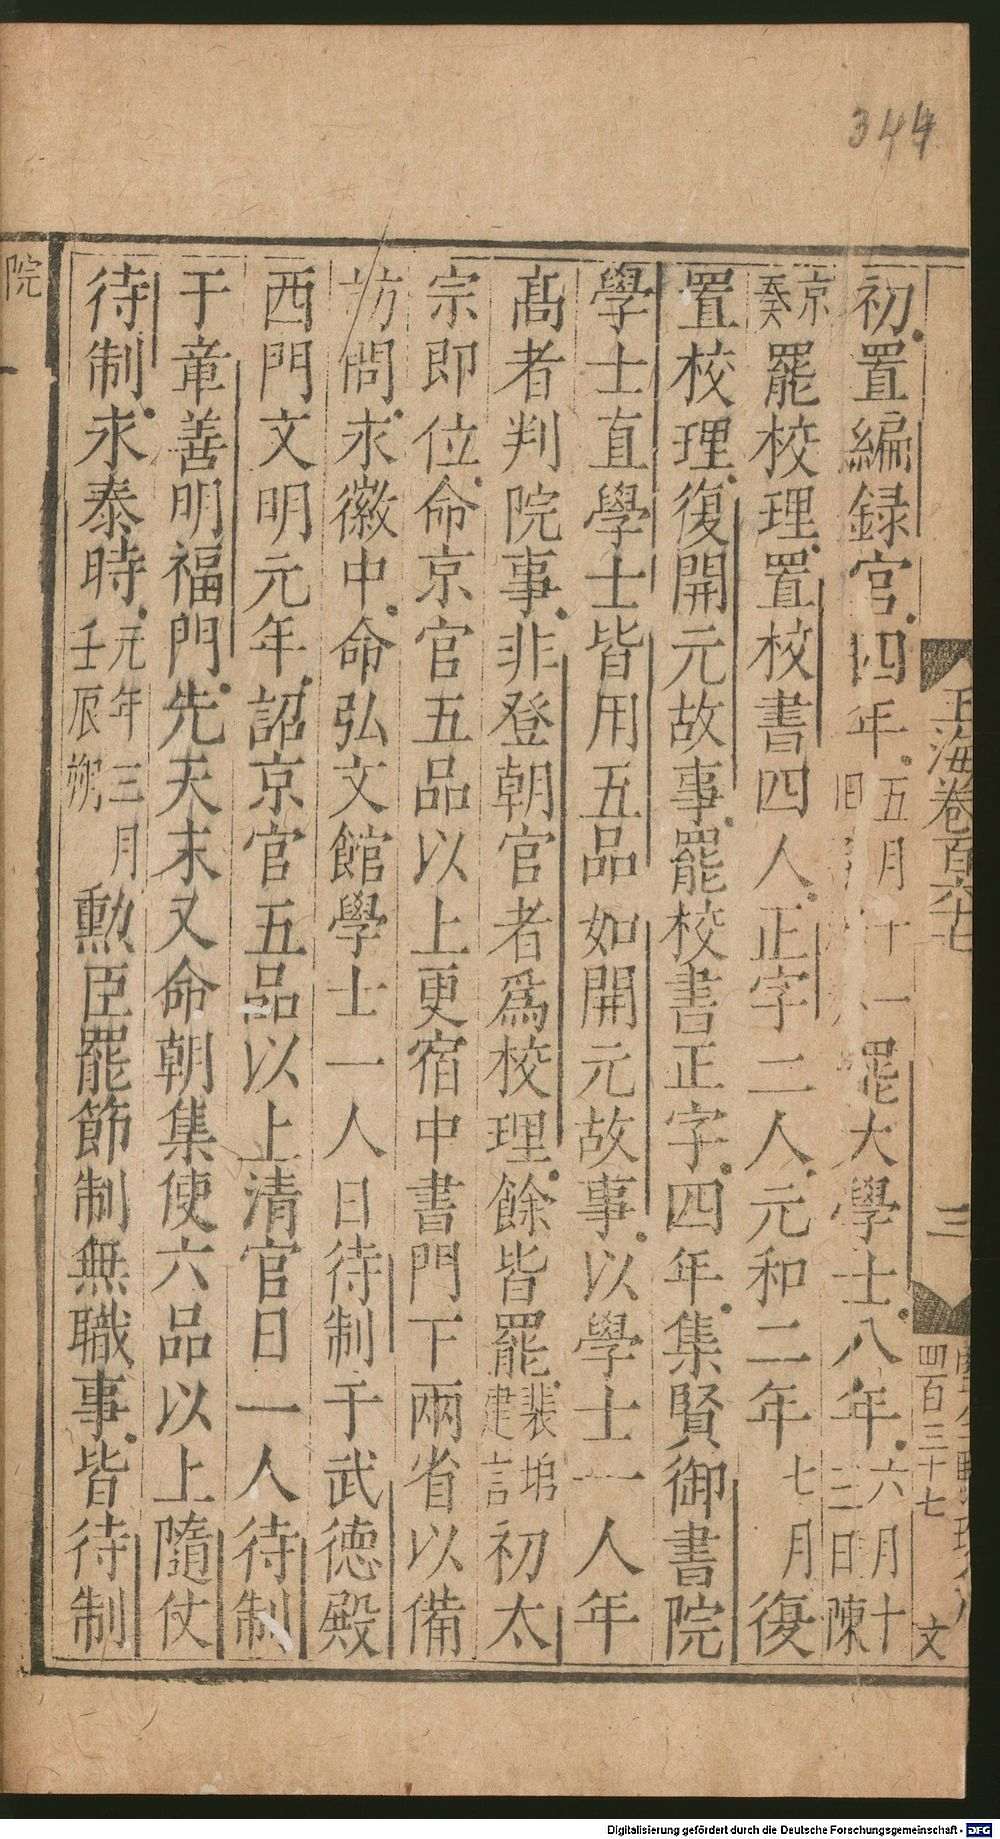 344
玉海卷百六七
三
四百三十七
文
初置編録官四年五月十一罷大學士八年六月十二日陳
京奏罷校理置校書四人正字二人元和二年七月復
置校理復開元故事罷校書正字四年集賢御書院
學士直學士皆用五品如開元故事以學士一人年
髙者判院事非登朝官者爲校理餘皆罷裴垍建言初太
宗即位命京官五品以上更宿中書門下兩省以備
訪問永徽中命弘文館學士一人日待制于武德殿
西門文明元年詔京官五品以上清官日一人待制
于章善明福門先天末又命朝集使六品以上隨仗
待制永泰時元年三月壬辰朔勲臣罷節制無職事皆待制
院
Digitalisierung gefördert durch die Deutsche Forschungsgemeinschaft - DFG